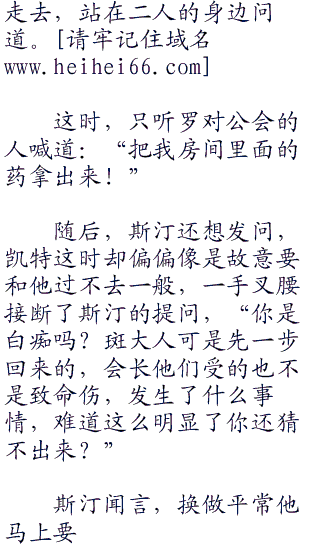 走去，站在二人的身边问
道。[请牢记住域名
www.heihei66.com]
这时，只听罗对公会的
人喊道：“把我房间里面的
药拿出来！”
随后，斯汀还想发问，
凯特这时却偏偏像是故意要
和他过不去一般，一手叉腰
接断了斯汀的提问，“你是
白痴吗？斑大人可是先一步
回来的，会长他们受的也不
是致命伤，发生了什么事
情，难道这么明显了你还猜
不出来？”
斯汀闻言，换做平常他
马上要